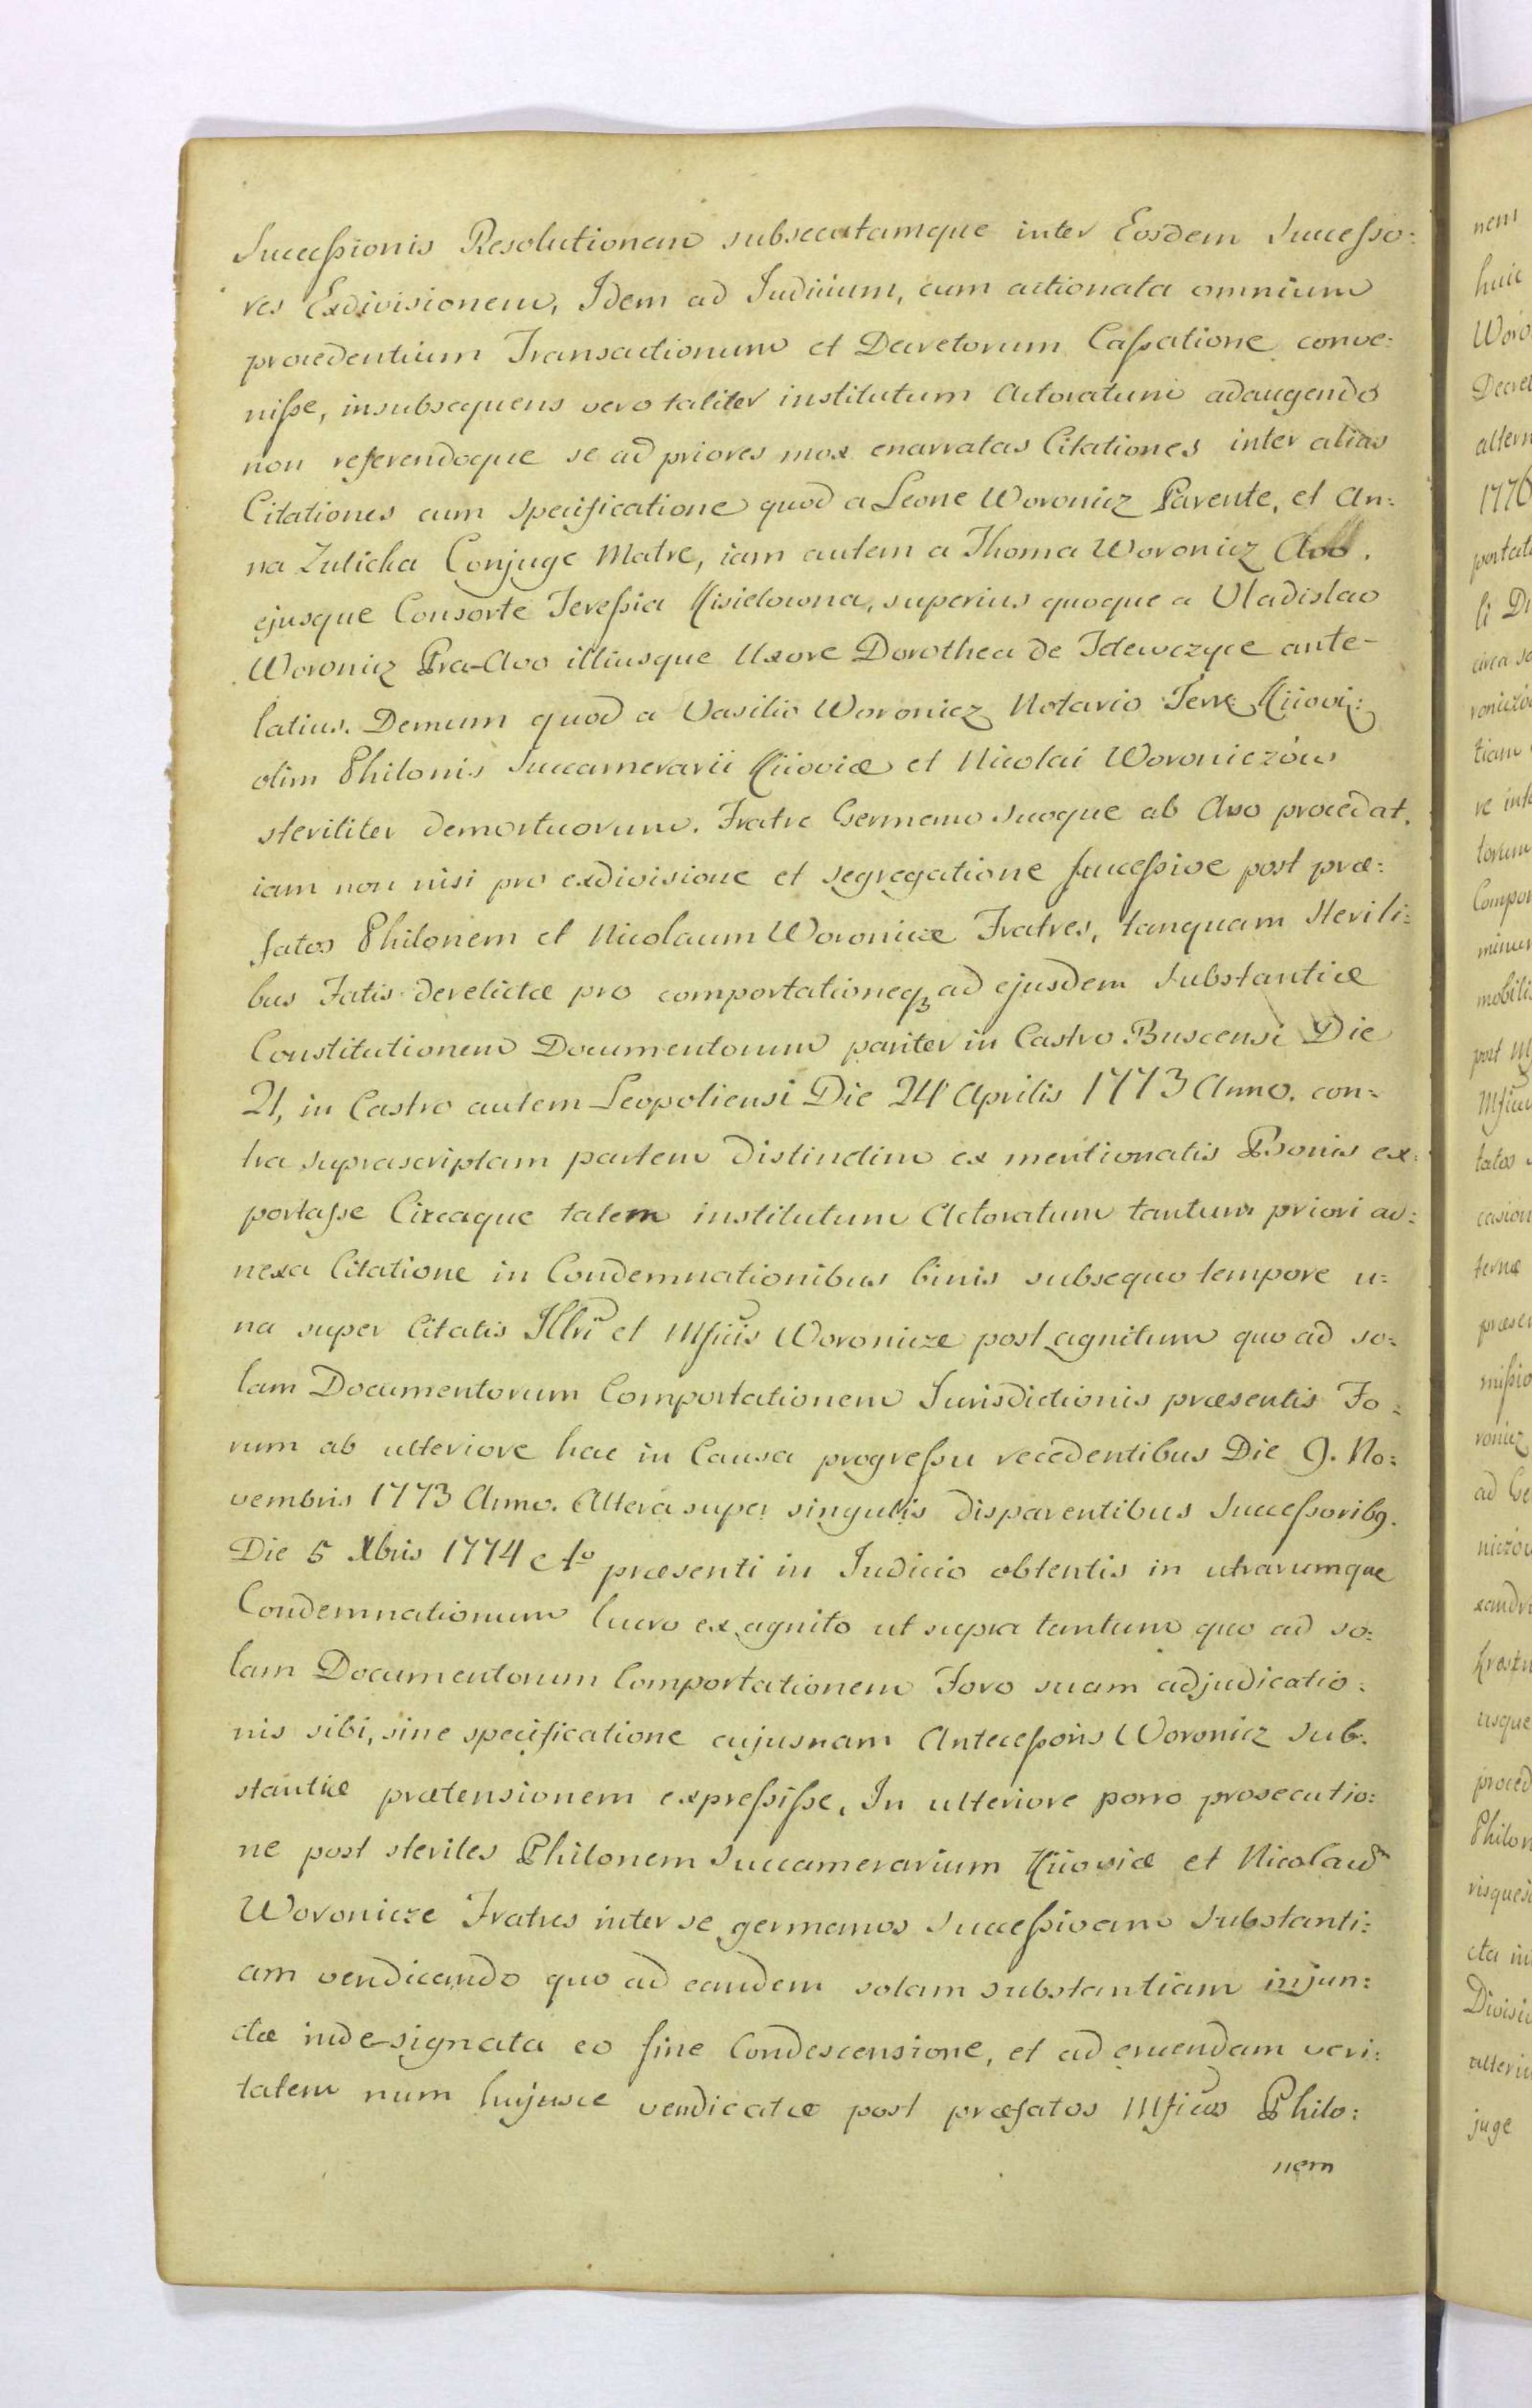 Successionis Resolutionem subsecutamque inter Eosdem Successo:
res Exdivisionem, Idem ad Judicium, cum actionata omnium
procedentium Transactionum et Decretorum Cassatione conve:
nisse, insubsequens vero taliter institutum Actoratum adaugendo
non referendoque se ad priores mox enarratas Citationes inter alias
Citationes cum specificatione quod a Leone Woronicz Parente, et An:
na Zulicka Conjuge Matre, iam autem a Thoma Woronicz Avo.
ejusque Consorte Teressia Kisielowna, superius quoque a Vladislao
Woronicz Pra-Avo illiusque Uxore Dorothea de Jelewczyce ante-
latius. Demum quod a Vasilio Woronicz Notario Terre Kiiovi:
olim Philonis Succamerarii Kiioviæ et Nicolai Woroniczów
steriliter demortuorum. Fratre Germano suoque ab Avo procedat.
iam non nisi pro exdivisione et segregatione successive post præ:
fatos Philonem et Nicolaum Woronicze Fratres, tanquam sterili:
bus Fatis derelictæ pro comportationeq3 ad ejusdem substantiæ
Constitutionem Documentorum pariter in Castro Buscensi Die
21, in Castro autem Leopoliensi Die 24 Aprilis 1773 Anno. con:
tra suprascriptam partem distinctim ex mentionatis Bonis ex:
portasse Circaque talem institutum Actoratum tantum priori ad:
nexa Citatione in Condemnationibus binis subsequo tempore u:
na super Citatis Illri et Mficis Woronicze post agnitum quo ad so:
lam Documentorum Comportationem Jurisdictionis præsentis Fo:
rum ab ulteriore hac in Causa progressu recedentibus Die 9. No:
vembris 1773 Anno. Altera super singulis disparentibus Successoribq.
Die 5 Xbris 1774 Ao præsenti in Judicio obtentis in utrarumque
Condemnationum lucro ex agnito ut supra tantum quo ad so:
lam Documentorum Comportationem Foro suam adjudicatio:
nis sibi, sine specificatione cujusnam Antecessoris Woronicz sub:
stantiæ prætensionem expressisse, In ulteriore porro prosecutio:
ne post steriles Philonem Succamerarium Kiioviæ et Nicolaum
Woronicze Fratres inter se germanos Successivam Substanti:
am vendicando quo ad eandem solam substantiam injun:
ctæ inde signata eo fine Condescensione, et ad eruendam veri:
tatem num hujusce vendicatæ post præfatos Mficos Philo:
nem